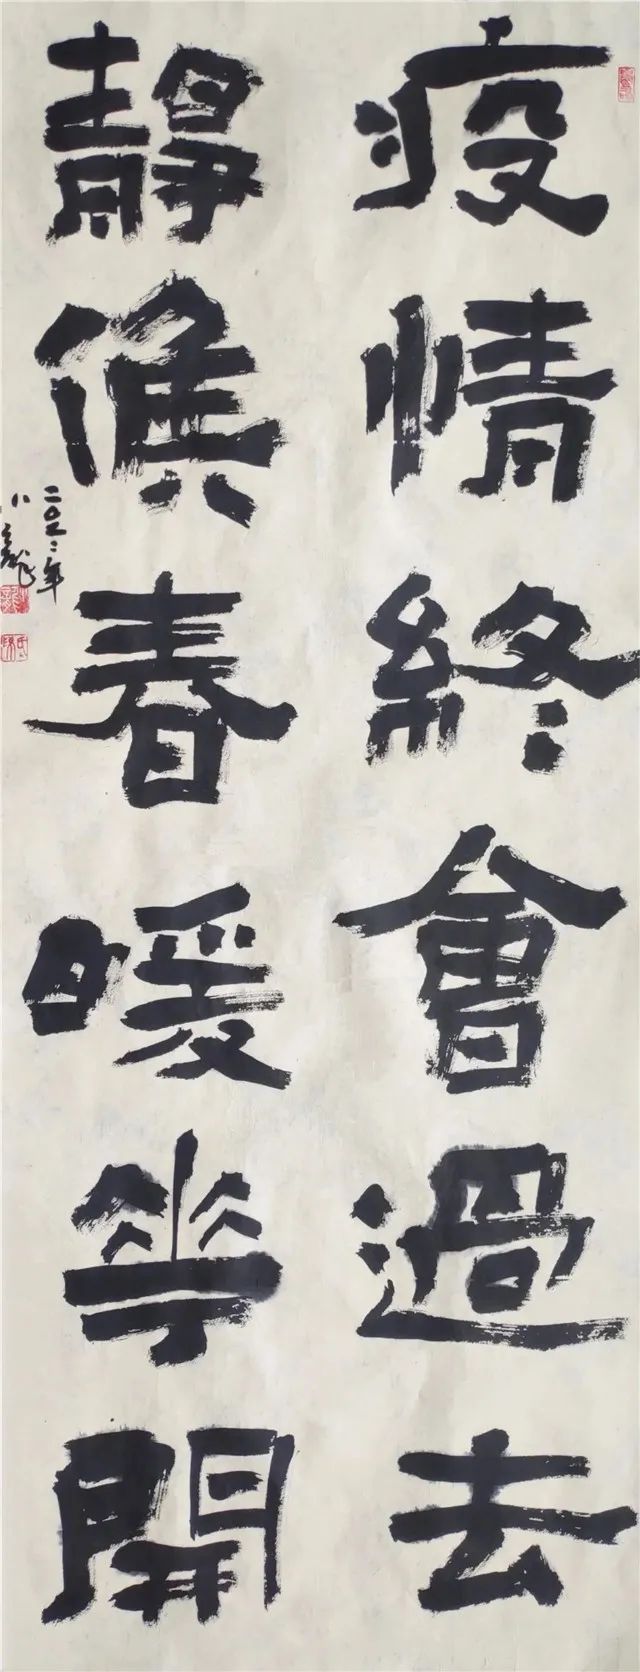 疫情終會過去
靜候春暖花開
二〇二二年